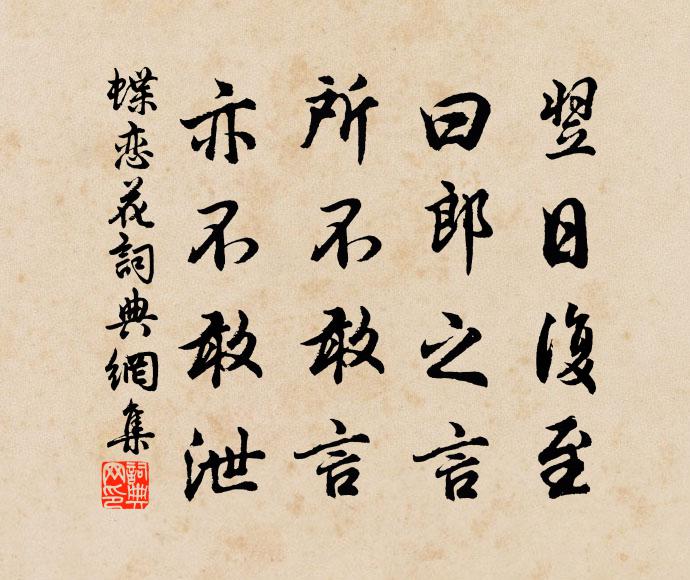 翌日復至
曰郎之言
所不敢言
亦不敢泄
蝶恋花詞典網集
詞典
网印